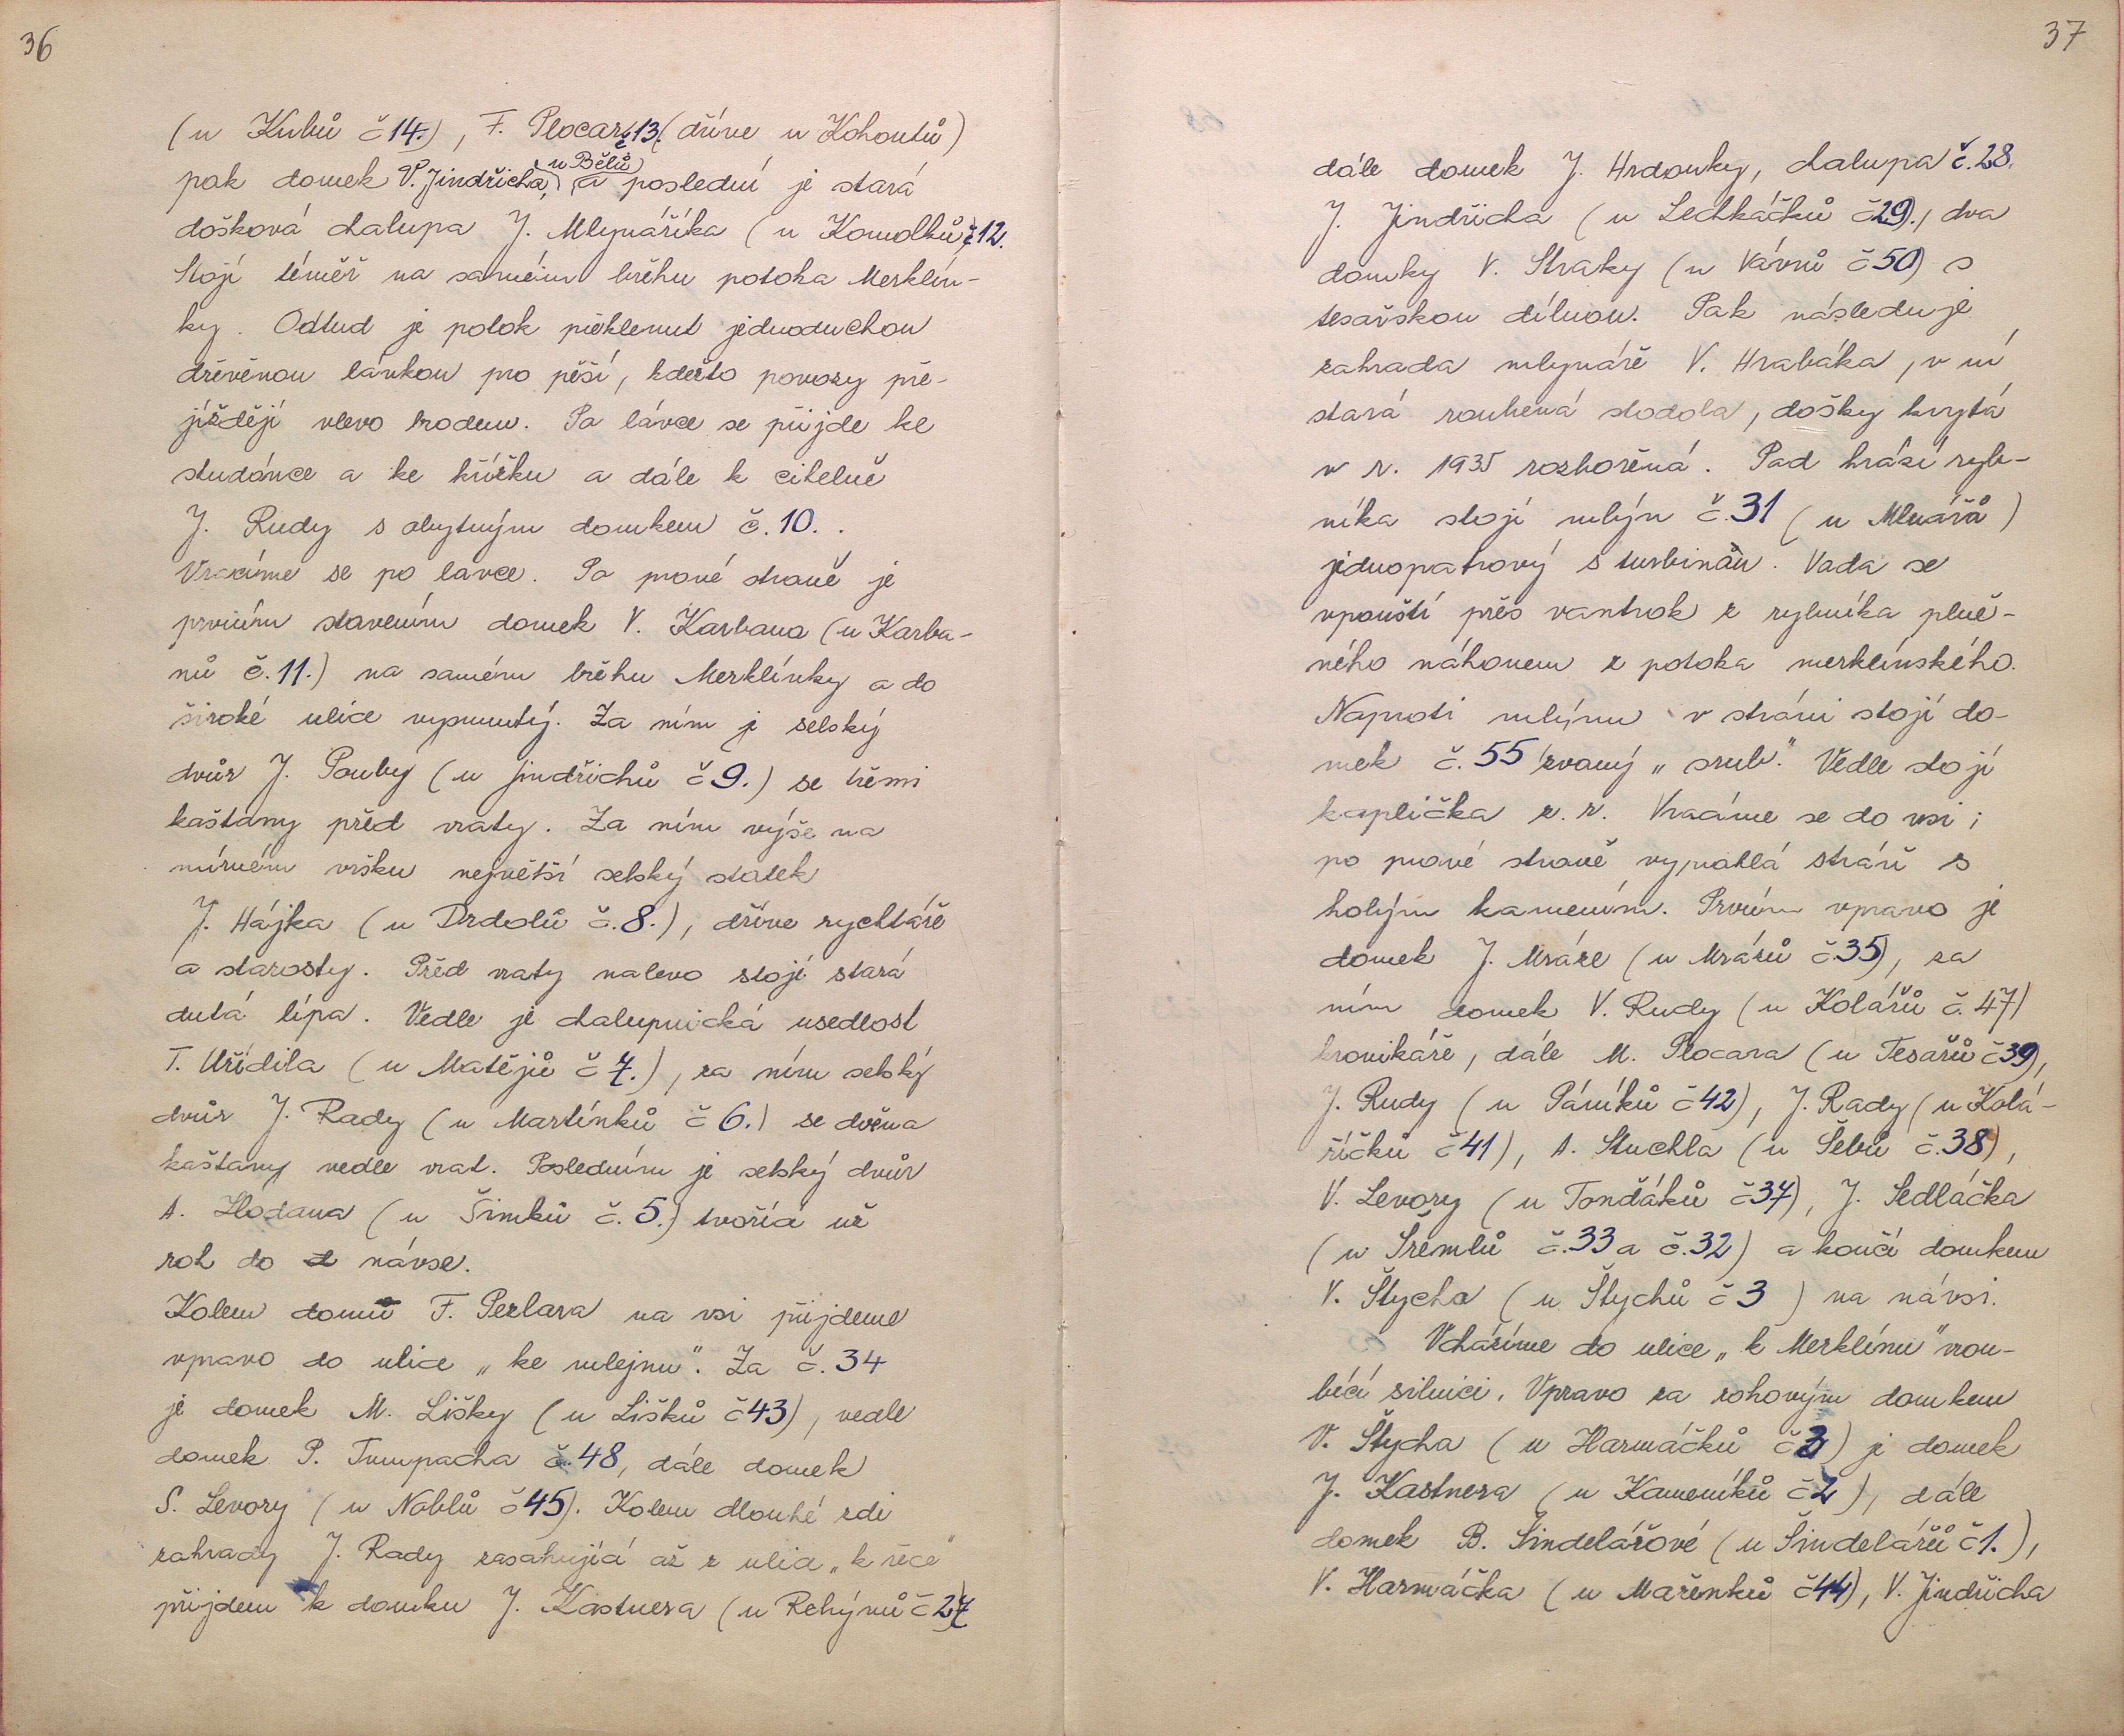 36
(u Kubů č 14.), F. Plocar č 13. (dříve u Kohoutů)
pak domek V. Jindřicha, (u Bělů) a poslední je stará
došková chalupa J. Mlynáříka (u Komolků č 12.
Stojí téměř na samém břehu potoka Merklín-
ky. Odtud je potok překlenut jednoduchou
dřevěnou lávkou pro pěší, kdežto povozy pře-
jíždějí vlevo brodem. Po lávce se přijde ke
studánce a ke křížku a dále k cihelně
J. Rudy s obytným domkem č. 10. .
Vracíme se po lávce. Po pravé straně je
prvním stavením domek V. Karbana (u Karba-
nů č. 11.) na samém břehu Merklínky a do
široké ulice vypnutý. Za ním je selský
dvůr J. Pouby (u Jindřichů č 9.) se třemi
kaštany před vraty. Za ním výše na
mírném vršku největší selský statek
J. Hájka (u Drdolů č. 8.), dříve rychtáře
a starosty. Před vraty nalevo stojí stará
dutá lípa. Vedle je chalupnická usedlost
T. Uřídila (u Matějů č 7.), za ním selský
dvůr J. Rady (u Martínků č 6.) se dvěma
kaštany vedle vrat. Posledním je selský dvůr
A. Hodana (u Šimků č. 5.) tvořící už
roh do návse.
Kolem domu F. Pezlara na vsi přijdeme
vpravo do ulice „ke mlejnu". Za č. 34
je domek M. Lišky (u Lišků č 43), vedle
domek P. Tumpacha č. 48, dále domek
S. Levory (u Noblů č 45). Kolem dlouhé zdi
zahrady J. Rady zasahující až z ulice „k řece"
přijdem k domku J. Kastnera (u Rehýnů č 27)
37
dále domek J. Hrdonky, chalupa č. 28,
J. Jindřicha (u Lechkáčků č 29)., dva
domky V. Straky (u Vávrů č 50) s
tesařskou dílnou. Pak následuje
zahrada mlynáře V. Hrabáka, v ní
stará roubená stodola, došky krytá
v r. 1935 rozbořená. Pod hrází ryb-
níka stojí mlýn č. 31 (u Mlnářů)
jednopatrový s turbinou. Voda se
vpouští přes vantrok z rybníka plně-
ného náhonem z potoka merklínského.
Naproti mlýnu v stráni stojí do-
mek č. 55 zvaný „srub". Vedle stojí
kaplička z r. Vracíme se do vsi;
po pravé straně vyprahlá stráň s
holým kamením. Prvním vpravo je
domek J. Mráze (u Mrázů č. 35), za
ním domek V. Rudy (u Kolářů č. 47)
kronikáře, dále M. Plocara (u Tesařů č 39),
J. Rudy (u Páníků č 42), J. Rady (u Kolá-
říčků č 41), A. Stuchla (u Šebů č. 38),
V. Levory (u Tondáků č 37), J. Sedláčka
(u Šrémlů č. 33 a č. 32) a končí domkem
V. Štycha (u Štychů č 3 ) na návsi.
Vcházíme do ulice „k Merklínu" vrou-
bící silnici. Vpravo za rohovým domkem
V. Štycha (u Harmáčků č 3) je domek
J. Kastnera (u Kameníků č 2), dále
domek B. Šindelářové (u Šindelářů č 1.),
V. Harmáčka (u Mařenků č 44), V. Jindřicha